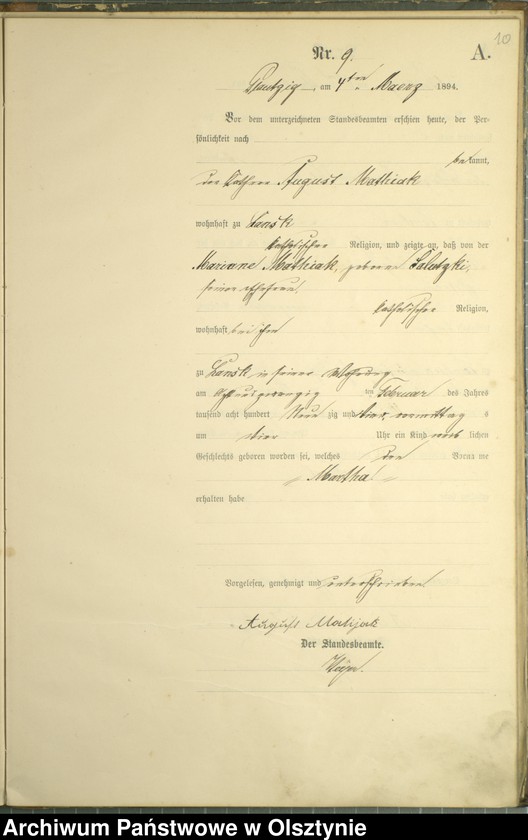 10
Nr. 9. A.
am 4ten Maerz 1894.
Vor dem unterzeichneten Standesbeamten erschien heute, der Per-
sönlichkeit nach
bekannt,
der August Mathiak
wohnhaft zu Lansk
katholischer Religion, und zeigte an, daß von der
Marianne Mathiak, geborene
seiner Ehefrau
katholischer Religion,
wohnhaft bei ihm
zu Lansk in seiner Wohnung
am achtundzwanzig ten Februar des Jahres
tausend acht hundert Neun zig und vier vormittag s
um vier Uhr ein Kind weib lichen
Geschlechts geboren worden sei, welches den Vorna me
Martha
erhalten habe
Vorgelesen, genehmigt und unterschrieben
August Matijak
Der Standesbeamte.
Archiwum Państwowe w Olsztynie